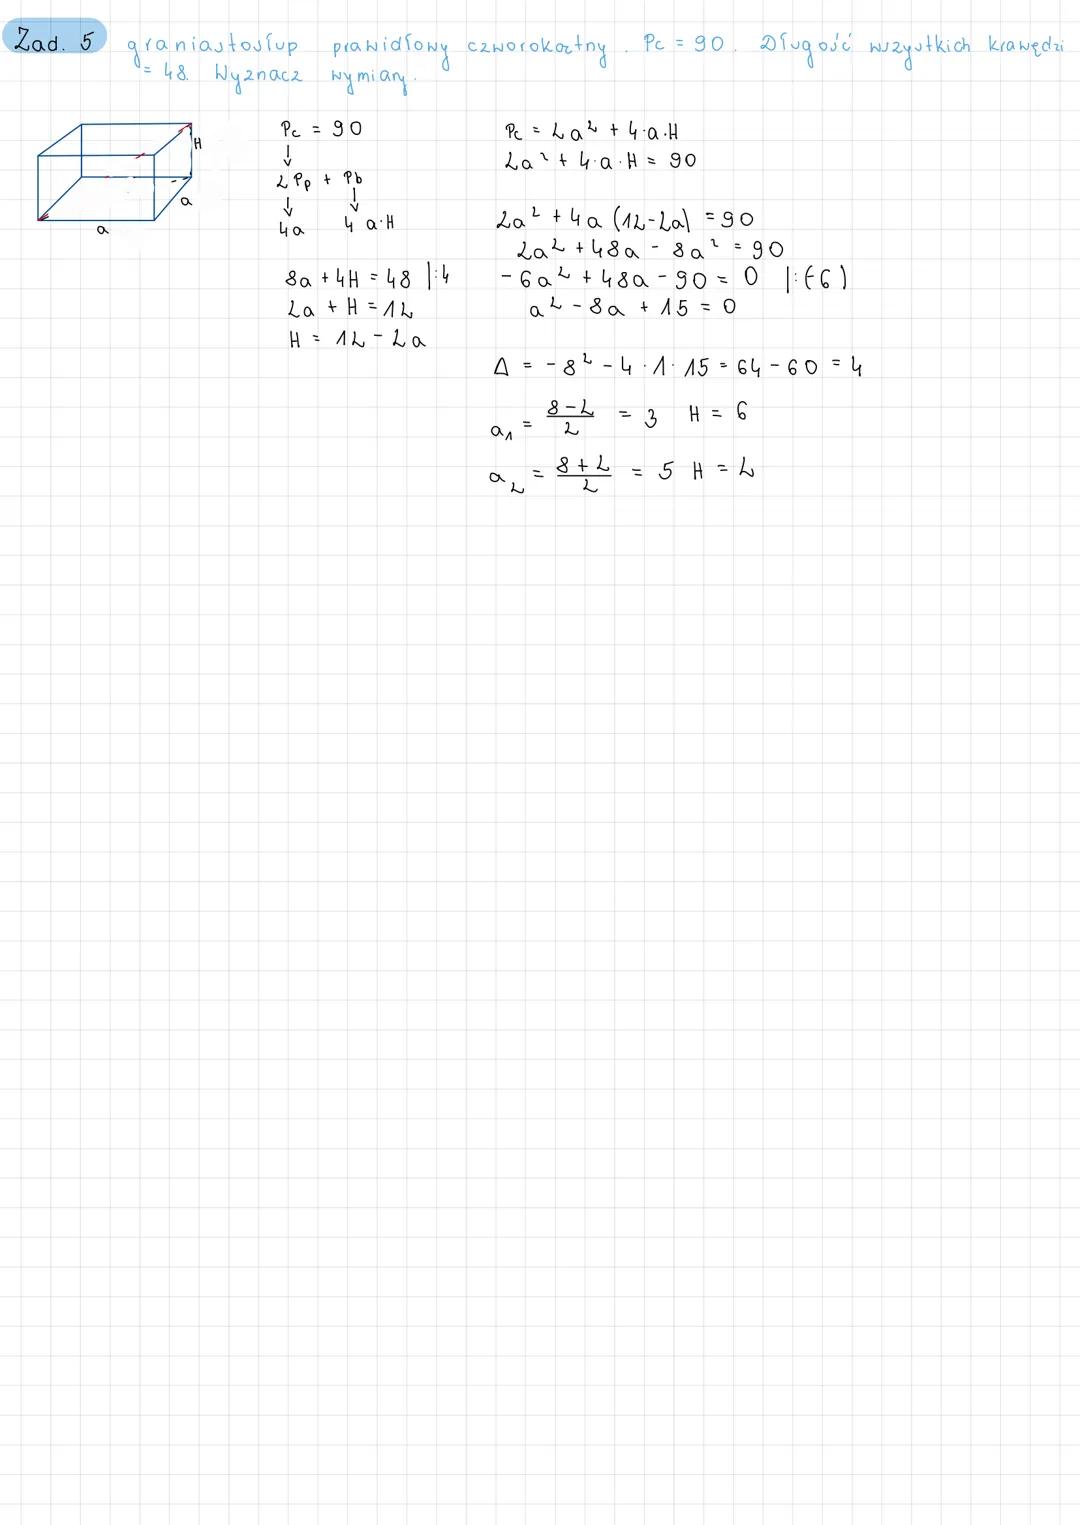 Zad. 5 graniastosłup prawidłowy czworokątny. Pc = 90. Długość wszystkich krawędzi
= 48. Wyznacz wymiary.
H
a
a
Pc = 90
↓
2Pp + Pb
↓ ↓
4a 4 a·H
8a + 4H = 48 |:4
2a + H = 12
H = 12 - 2a
Pc = 2a² + 4·a·H
2a² + 4·a·H = 90
2a² + 4a (12-2a) = 90
2a² + 48a - 8a² = 90
-6a² + 48a - 90 = 0 |:(-6)
a² - 8a + 15 = 0
Δ = -8² - 4·1·15 = 64 - 60 = 4
a₁ = (8-2)/2 = 3 H = 6
a₂ = (8+2)/2 = 5 H = 2